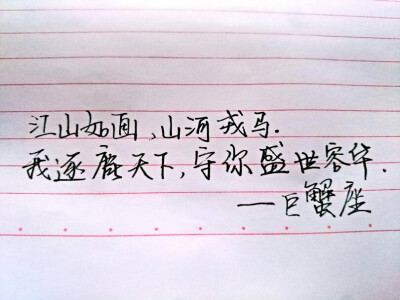 江山如画,山河戎马.
我逐鹿天下,守你盛世容华.
—巨蟹座